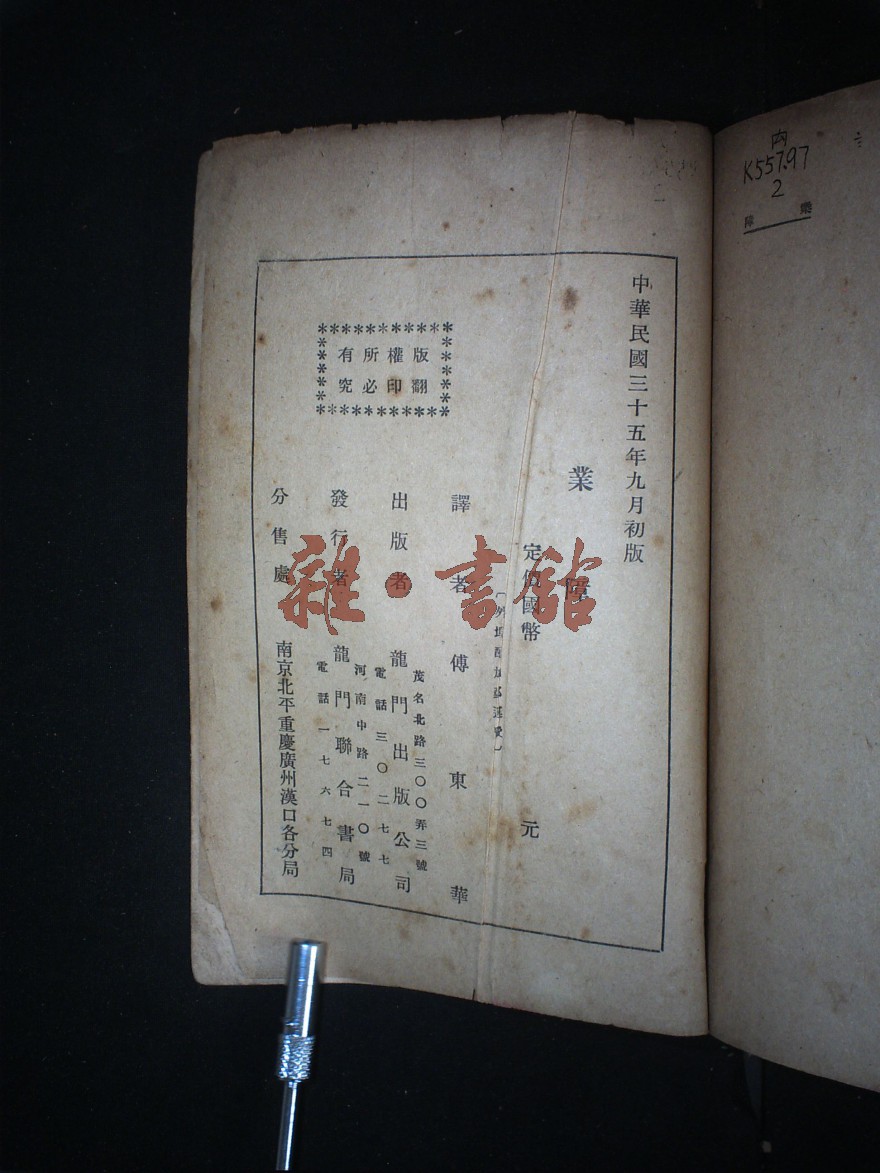 中華民國三十五年九月初版
業障
定價國幣 元
（外埠酌加郵運費）
譯者 傅東華
出版者 龍門出版公司
茂名北路三〇〇弄三號
電話三〇二七七
發行者 龍門聯合書局
河南中路二一〇號
電話一七六七四
分售處 南京北平重慶廣州漢口各分局
版權所有
翻印必究
雜·書館
内
K557.97
2
業障